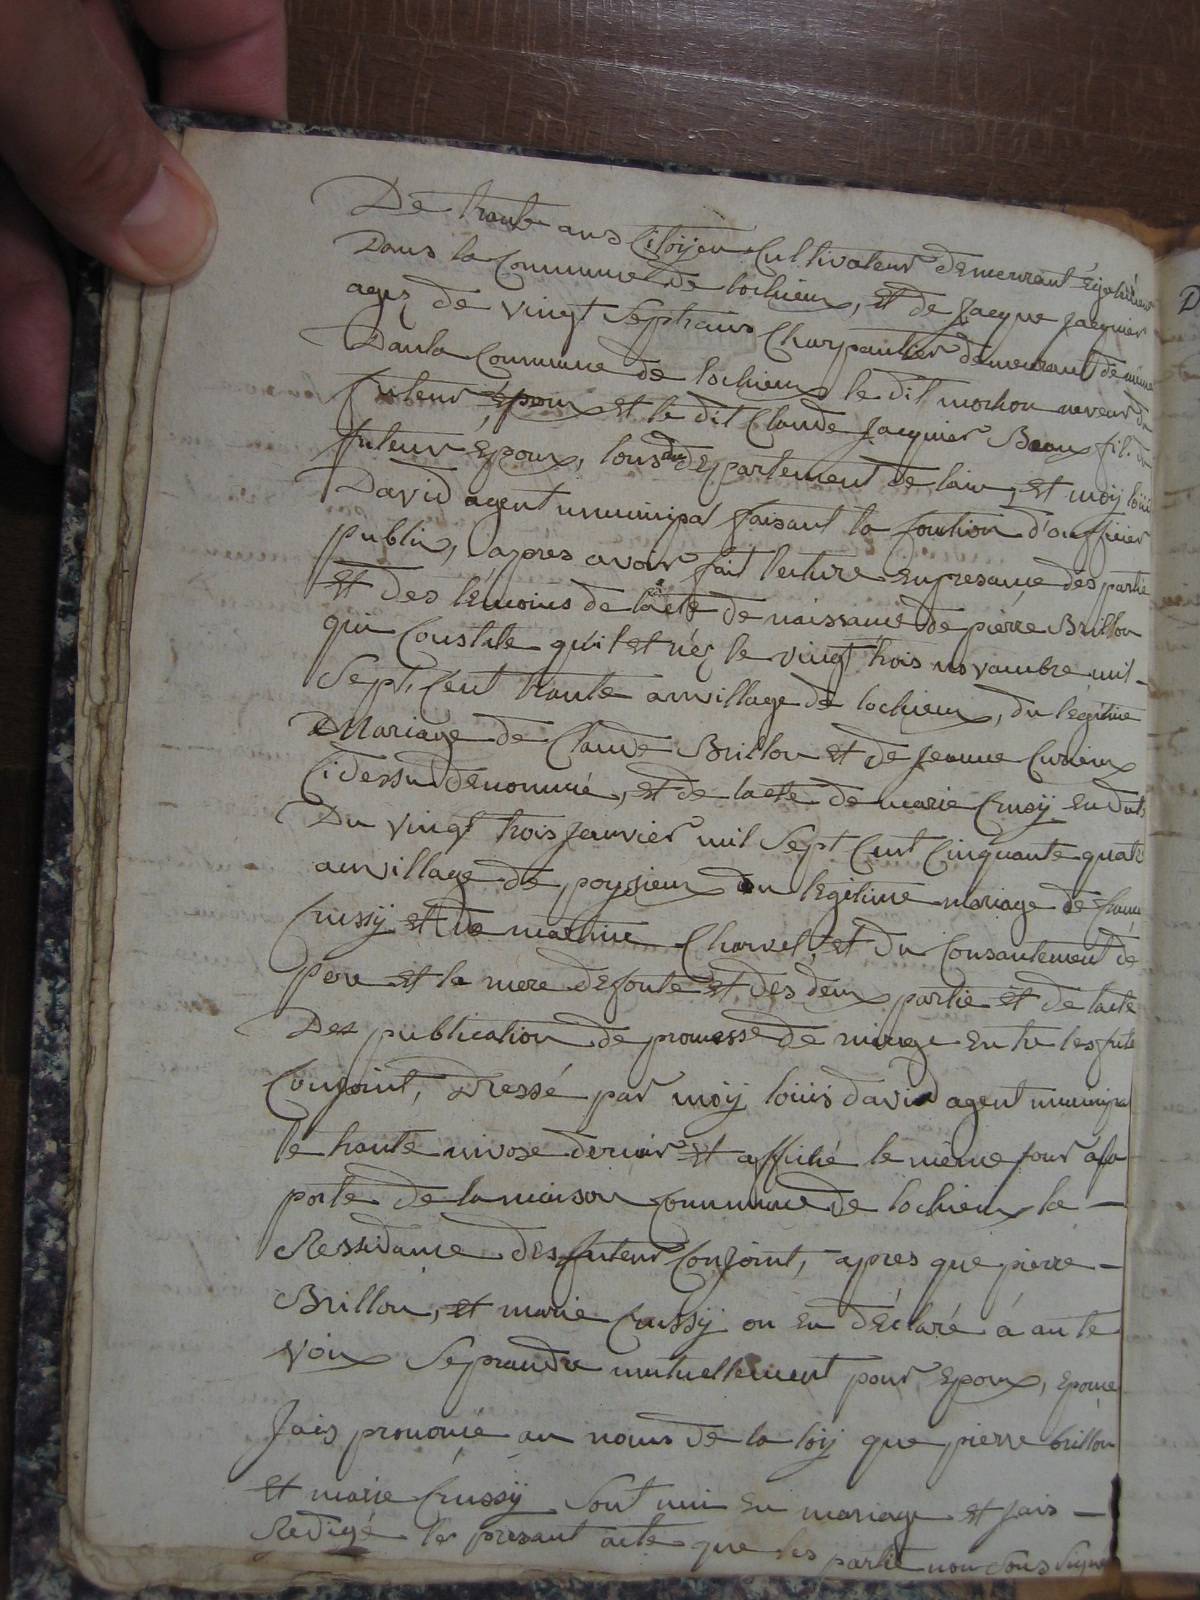 De trante ans Citoijen Cultivateur demeurant
Dans la Commune de lochieux, et de Jacque Jacquier
agez de vingt Sept ans Charpantier demeurant de même
Dans la Commune de lochieux le dit mochon neveur du
futeur Epoux et le dit Claude Jacquier Beau fil. du
futeur Epoux, tous du Departement de lain, et moij loüis
David agent municipal faisant la fontion d'oufficier
public, apres avoir fait lecture en presance des partie
et des temoins de lacte de naissance de pierre Brillon
qui Constate qu'il et néz le vingt trois novambre mil -
Sept, Cent trante au village de lochieux, du legitime
Mariage de Claude Brillon et de Jeanne
Ci dessu denommé, et de lacte de marie Crusij en date
Du vingt trois Janvier mil Sept Cent Cinquante quatre
au village de poysieux du legitime mariage de
Crussij et de Charvet, et du Consantement de
pere et la mere defonte et des deux partie et de lacte
Des publication de promesse de miage entre les fute
Conjoint, Dressé par moij loüis david agent municipal
le trante nivose dernier et affiché le même jour a la
porte de la maison Commune de lochieux la -
Ressidance des futeur Conjoint, apres que pierre -
Brillon, et marie Crussij on en déclaré á aute
voix Seprandre mutuellement pour Epoux, epouse
Jais prononcé au noms de la loij que pierre brillon
et marie Crussij Sont uni en mariage et jais -
Redigé le presant acte que les partie non Sous Signé
D